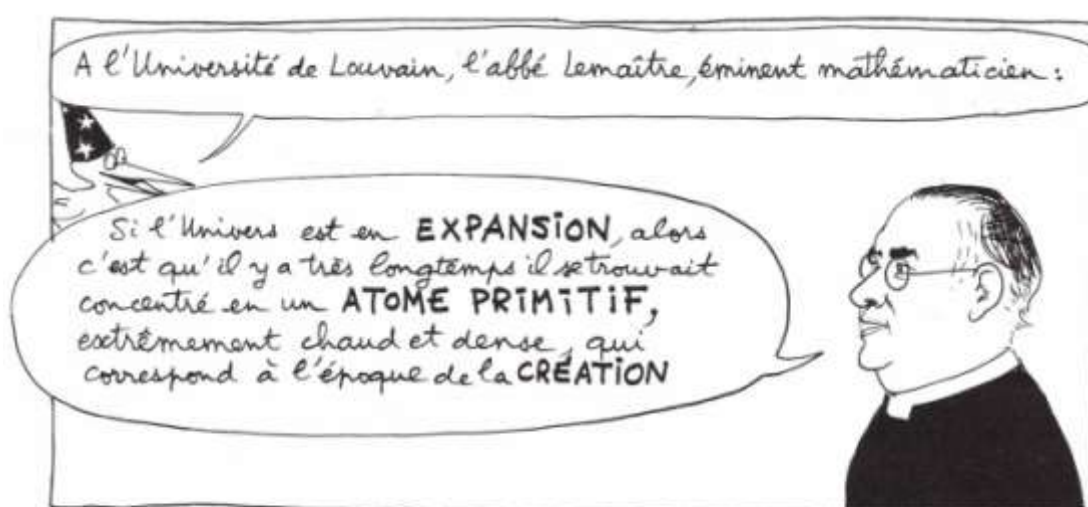 A l'Université de Louvain, l'abbé Lemaître, éminent mathématicien :
Si l'Univers est en EXPANSION, alors
c'est qu'il y a très longtemps il se trouvait
concentré en un ATOME PRIMITIF,
extrêmement chaud et dense, qui
correspond à l'époque de la CRÉATION